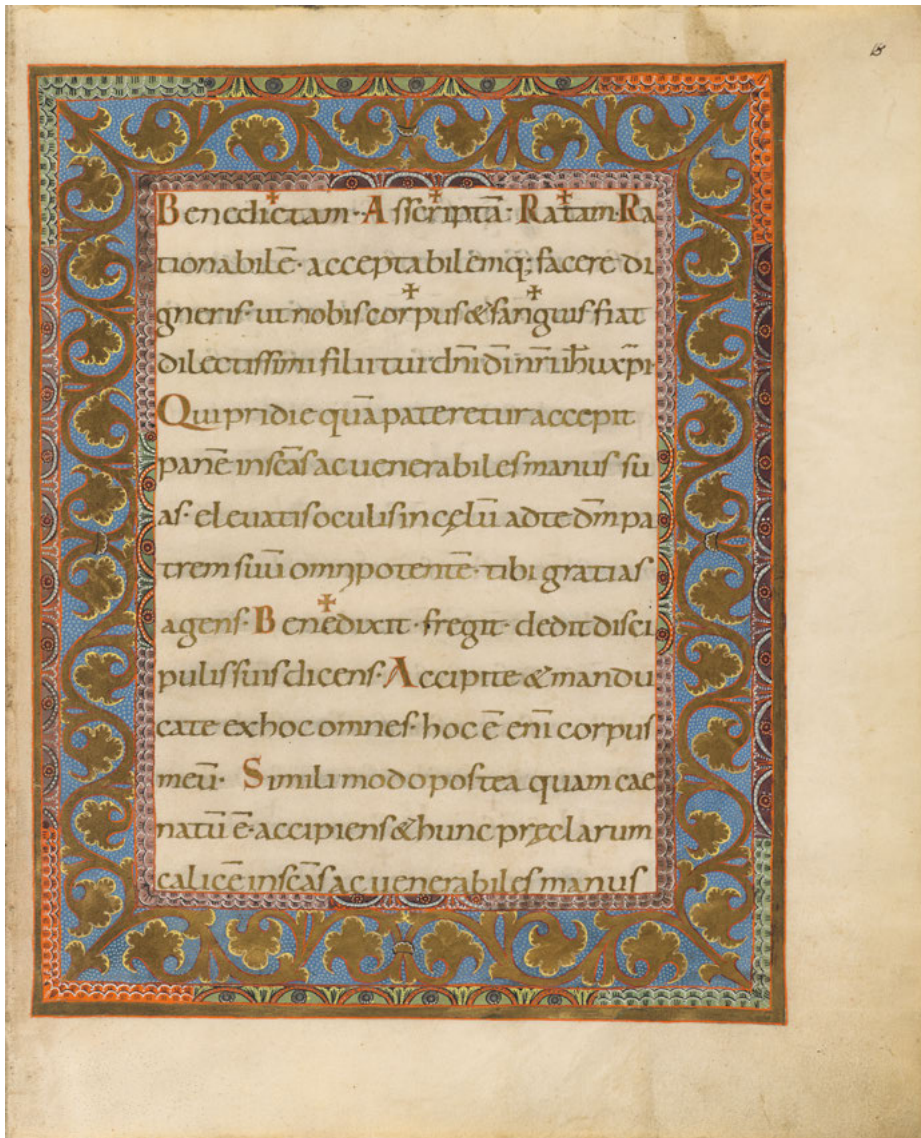 15
Benedictam· Asscriptā· Ratam· Ra
tionabilē· acceptabilemq; facere di
gneris· ut nobis corpus & sanguis fiat
dilectissimi filii tui dn̄i dī nr̄i ihu xp̄i·
Qui pridie quā pateretur accepit
panē in sc̄as ac uenerabiles manus su
as· eleuatis oculis in cęlū ad te dm̄ pa
trem suū omnipotentē· tibi gratias
agens· Benedixit· fregit· dedit disci
pulis suis dicens· Accipite & mandu
cate ex hoc omnes· hoc ē enī corpus
meū· Simili modo postea quam cae
natū ē· accipiens & hunc pręclarum
calicē in sc̄as ac uenerabiles manus